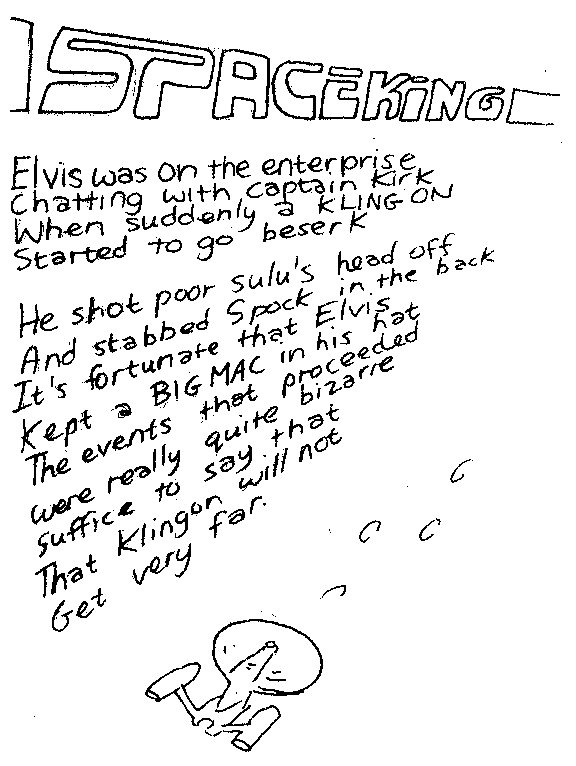 SPACEKING
Elvis was on the enterprise
Chatting with captain Kirk
When suddenly a KLINGON
Started to go beserk
He shot poor sulu's head off
And stabbed Spock in the back
It's fortunate that Elvis
Kept a BIG MAC in his hat
The events that proceeded
were really quite bizarre
suffice to say that
That Klingon will not
Get very far.